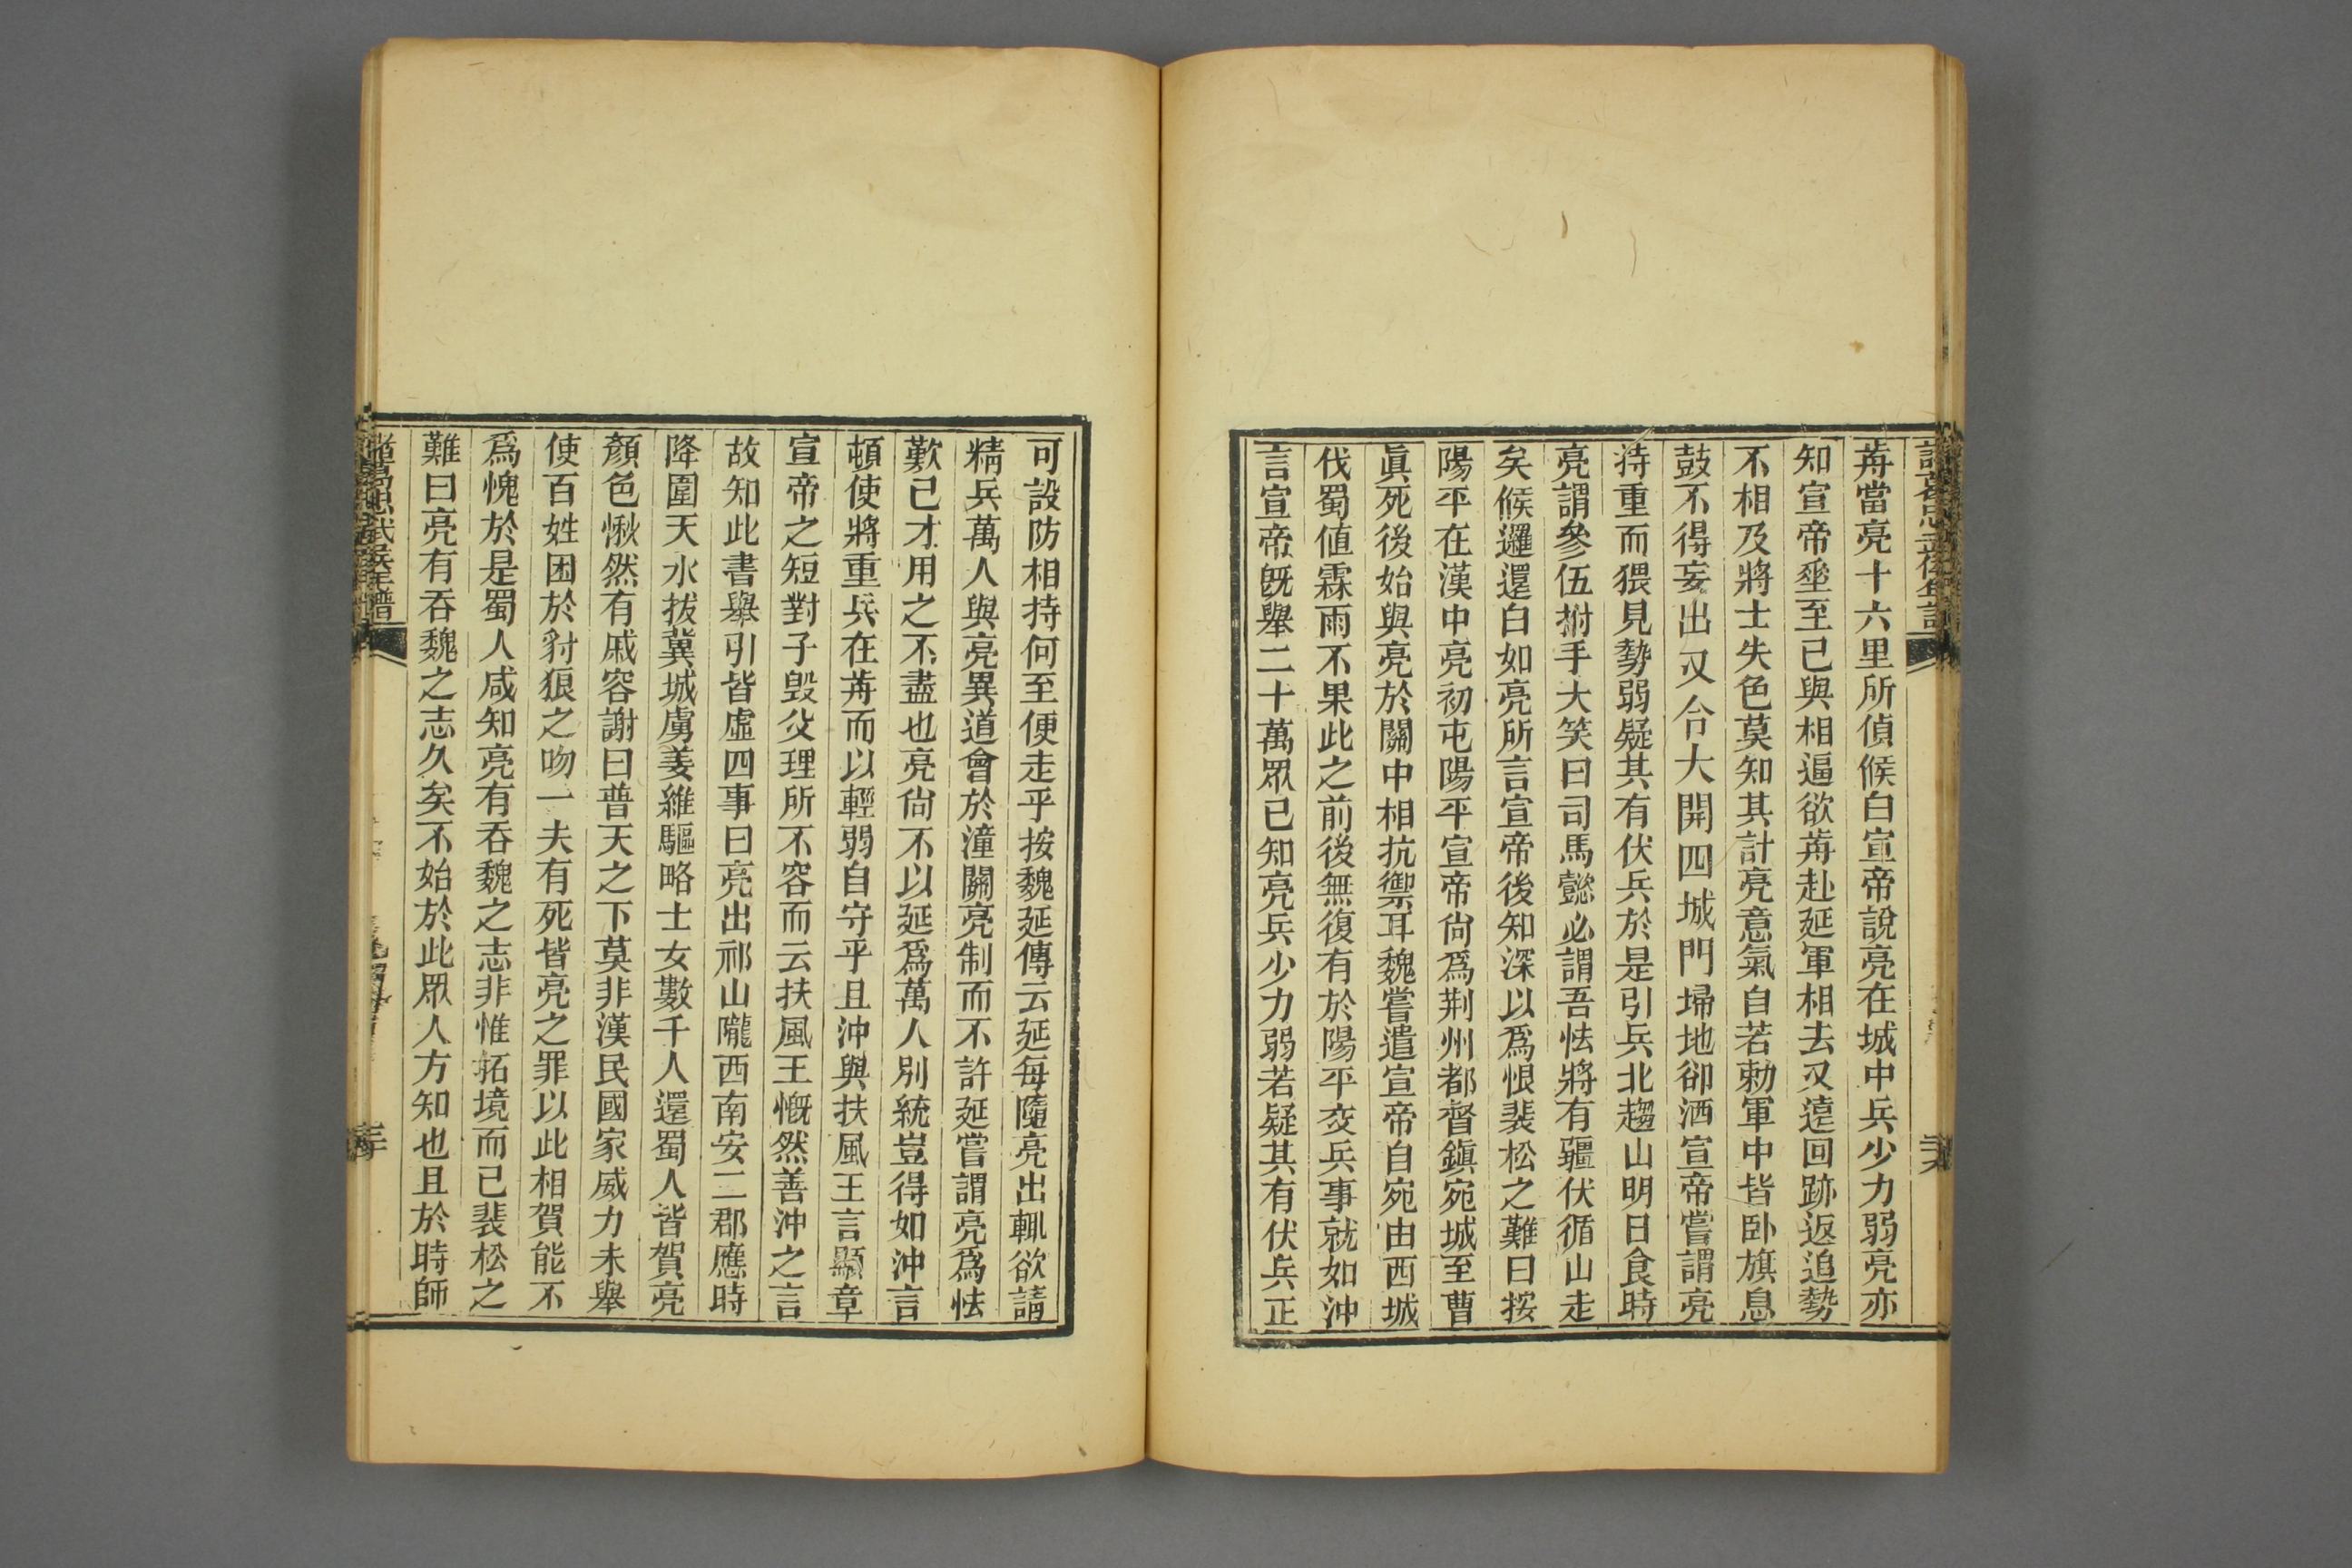 諸葛忠武侯年譜
歬當亮十六里所偵候白宣帝說亮在城中兵少力弱亮亦
知宣帝垂至已與相逼欲歬赴延軍相去又遠回跡返追勢
不相及將士失色莫知其計亮意氣自若勅軍中皆臥旗息
鼓不得妄出又令大開四城門埽地卻洒宣帝嘗謂亮
持重而猥見勢弱疑其有伏兵於是引兵北趨山明日食時
亮謂參伍拊手大笑曰司馬懿必謂吾怯將有疆伏循山走
矣候邏還白如亮所言宣帝後知深以爲恨裴松之難曰按
陽平在漢中亮初屯陽平宣帝尙爲荆州都督鎭宛城至曹
眞死後始與亮於關中相抗禦耳魏嘗遣宣帝自宛由西城
伐蜀値霖雨不果此之前後無復有於陽平交兵事就如沖
言宣帝旣舉二十萬眾已知亮兵少力弱若疑其有伏兵正
可設防相持何至便走乎按魏延傳云延每隨亮出輒欲請
精兵萬人與亮異道會於潼關亮制而不許延嘗謂亮爲怯
歎已才用之不盡也亮尙不以延爲萬人別統豈得如沖言
頓使將重兵在歬而以輕弱自守乎且沖與扶風王言顯章
宣帝之短對子毀父理所不容而云扶風王慨然善沖之言
故知此書舉引皆虛四事曰亮出祁山隴西南安二郡應時
降圍天水拔冀城虜姜維驅略士女數千人還蜀人皆賀亮
顏色愀然有戚容謝曰普天之下莫非漢民國家威力未舉
使百姓困於豺狼之吻一夫有死皆亮之罪以此相賀能不
爲愧於是蜀人咸知亮有吞魏之志非惟拓境而已裴松之
難曰亮有吞魏之志久矣不始於此眾人方知也且於時師
諸葛忠武侯年譜